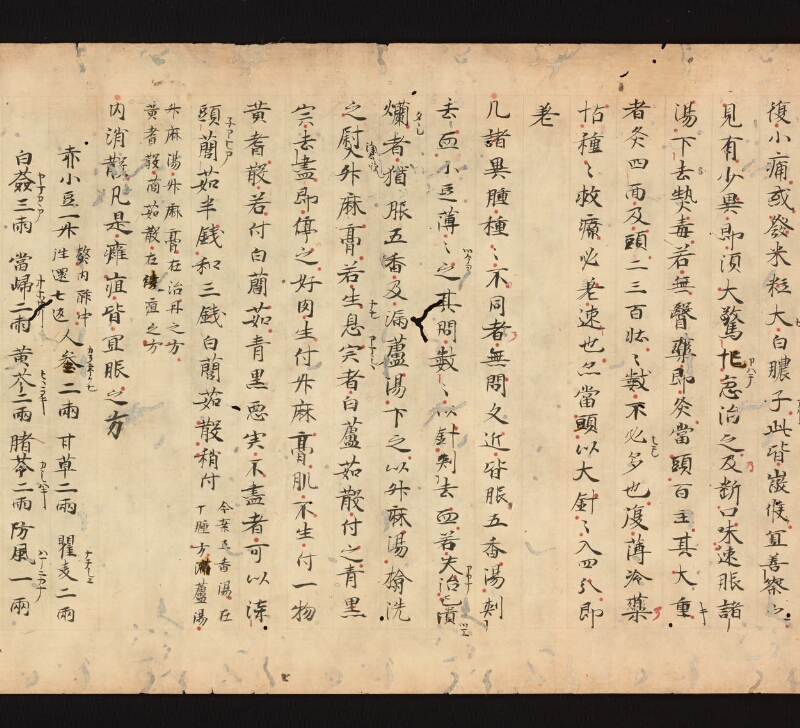 復小痛或發米粒大白膿子此皆微候宜善察之
見有少異即須大驚忙急治之及断口味速服諸
湯下去熱毒若無醫藥即灸當頭百壮其大重
者灸四面及頭二三百壮々數不必多也復薄冷藥
怗種々救療必差速也亦當頭以大針々入四分即
差
凡諸異腫種々不同者無問久近皆服五香湯刺
去血小豆薄々之其間數々以針刺去血若失治已潰
爛者猶服五香及漏蘆湯下之以升麻湯搨洗
之熨升麻膏若生息宍者白蘆茹散付之青黑
宍去盡即停之好肉生付升麻膏肌不生付一物
黄耆散若付白䕡茹青黒悪宍不盡者可以漆
頭䕡茹半錢和三錢白䕡茹散稍付
今案五香湯在
丁腫方漏蘆湯
升麻湯升麻膏在治丹之方
黄耆散䕡茹散在疽之方
内消散凡是癰疽皆宜服之方
赤小豆一升
熬内酢中
往還七返
人參二兩 甘草二兩 瞿麦二兩
白蘞三兩 當歸二兩 黄芩二兩 猪苓二兩 防風一兩